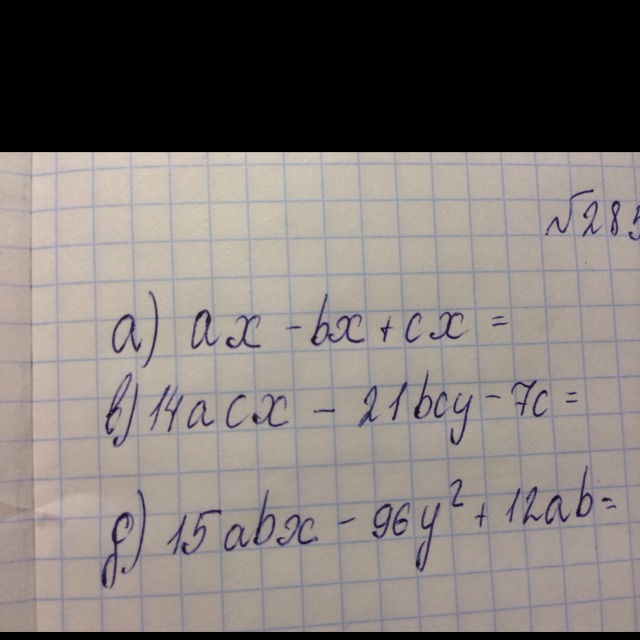 №285
а) ax - bx + cx =
в) 14acx - 21bcy - 7c =
д) 15abx - 96y² + 12ab =